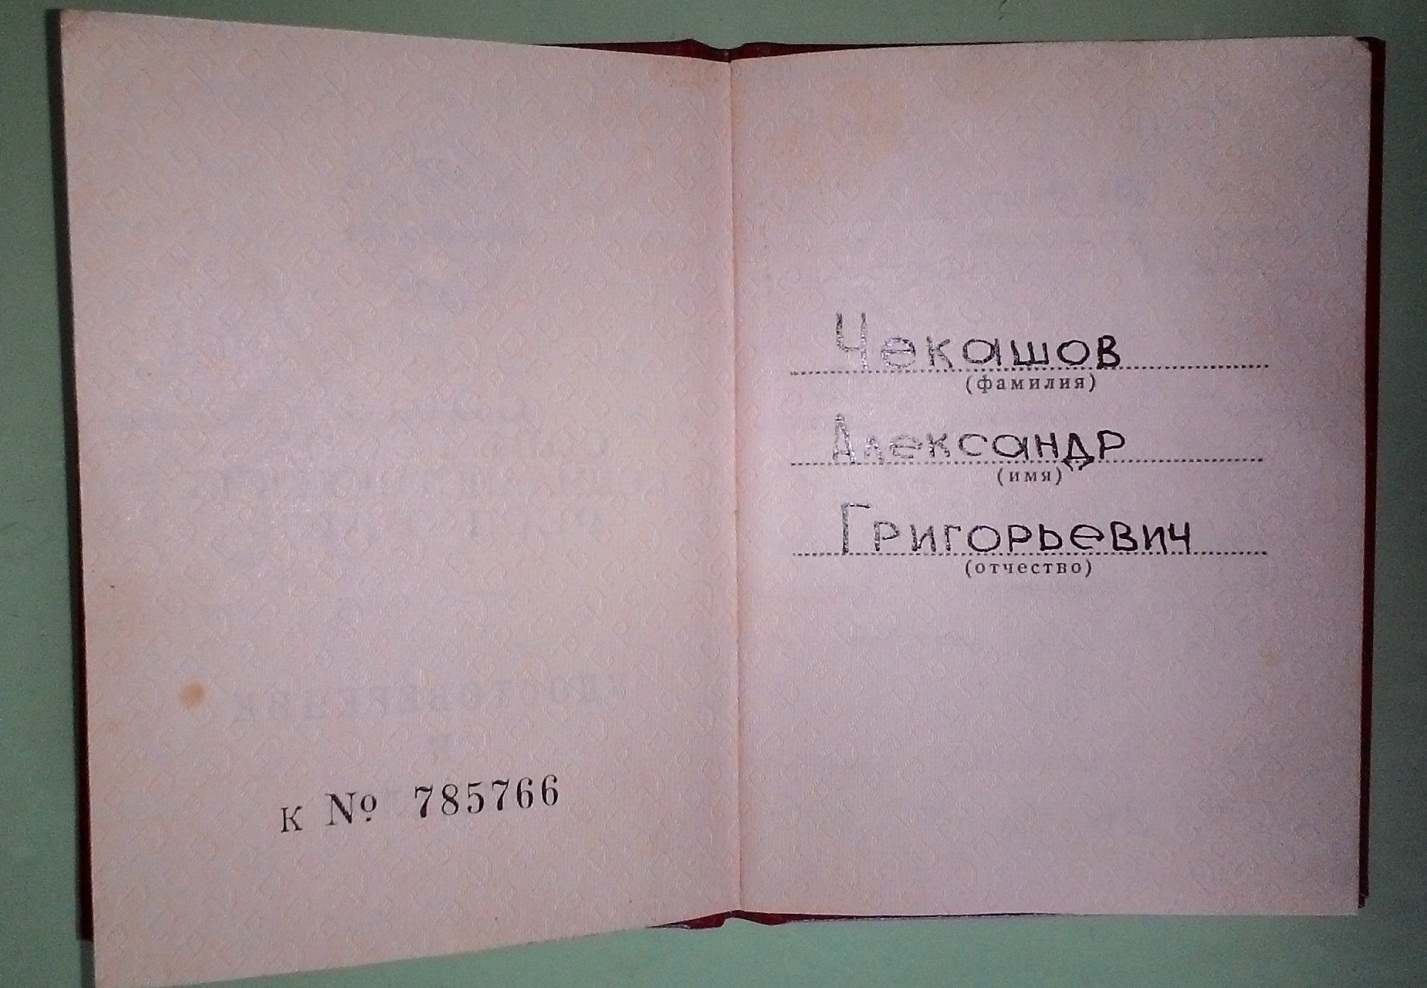 к № 785766
Чекашов
(фамилия)
Александр
(имя)
Григорьевич
(отчество)